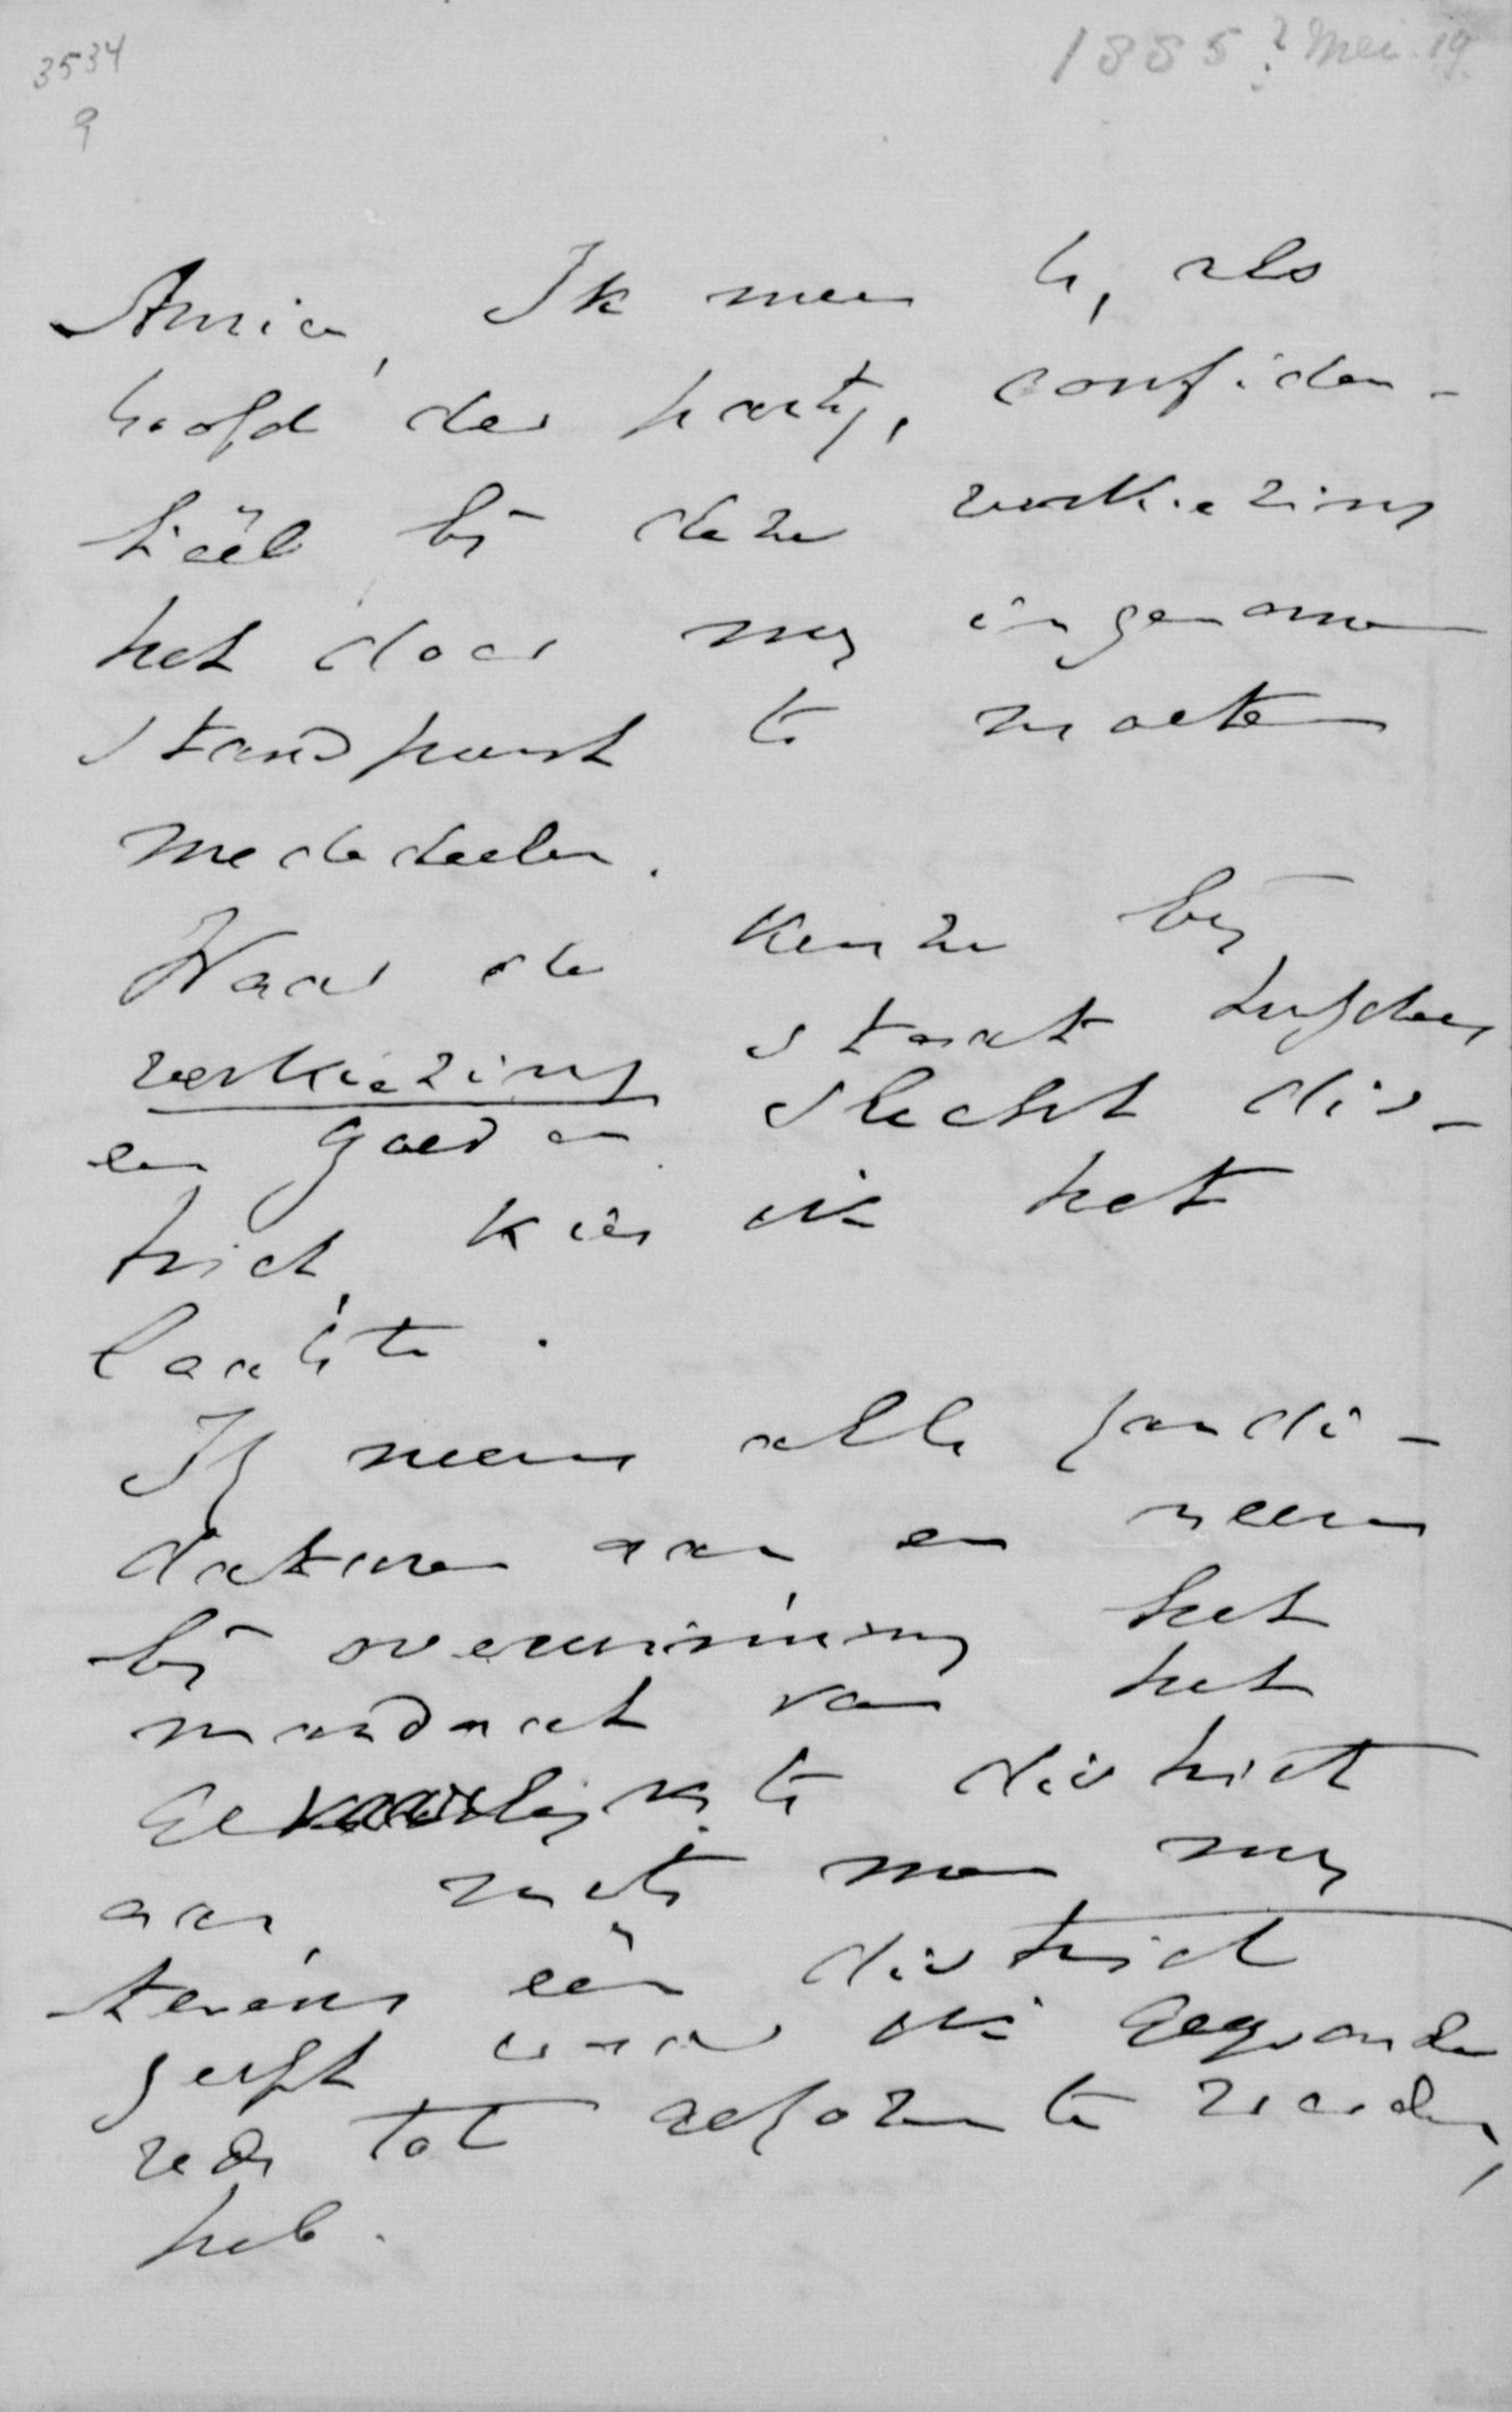 3534
9
1885? Mei 19.
Amice, Ik meen U, als
hoofd der partij, confiden-
tiëel bij deze verkiezing
het door mij ingenomen
standpunt te moeten
mededeelen.
Waar de keuze bij
verkiezing staat tusschen
een goed en slecht dis-
trict, kies ik het
laatste.
Ik neem alle candi-
daturen aan en neem
bij overwinning het
mandaat van het
gevaarlijkste district
aan, mits men mij
tevens één district
geeft waar ik gegronde
rede tot gekozen te worden
heb.